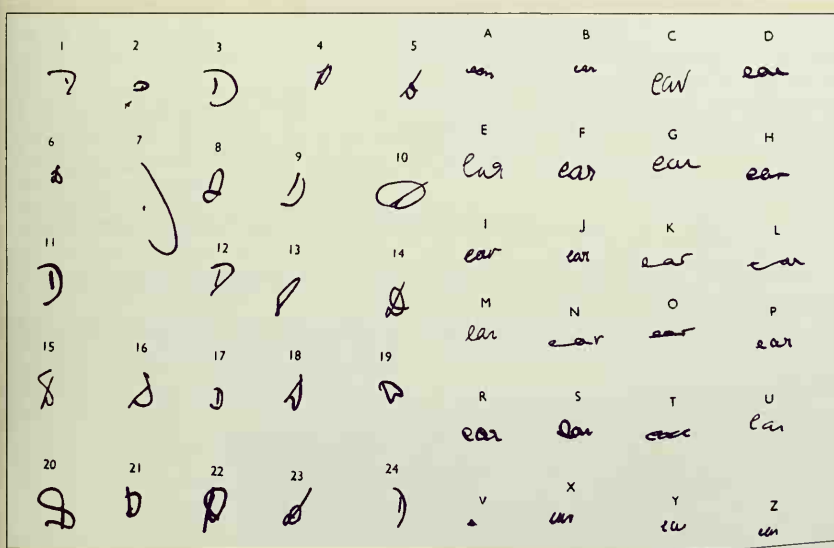 1 2 3 4 5
D D D D D
6 7 8 9 10
D D D D
11 12 13 14
D D D D
15 16 17 18 19
D D D D D
20 21 22 23 24
D D D D D
A B C D
ear ear ear ear
E F G H
ear ear ear ear
I J K L
ear ear ear ear
M N O P
ear ear ear ear
R S T U
ear ear ear ear
V X Y Z
ear ear ear